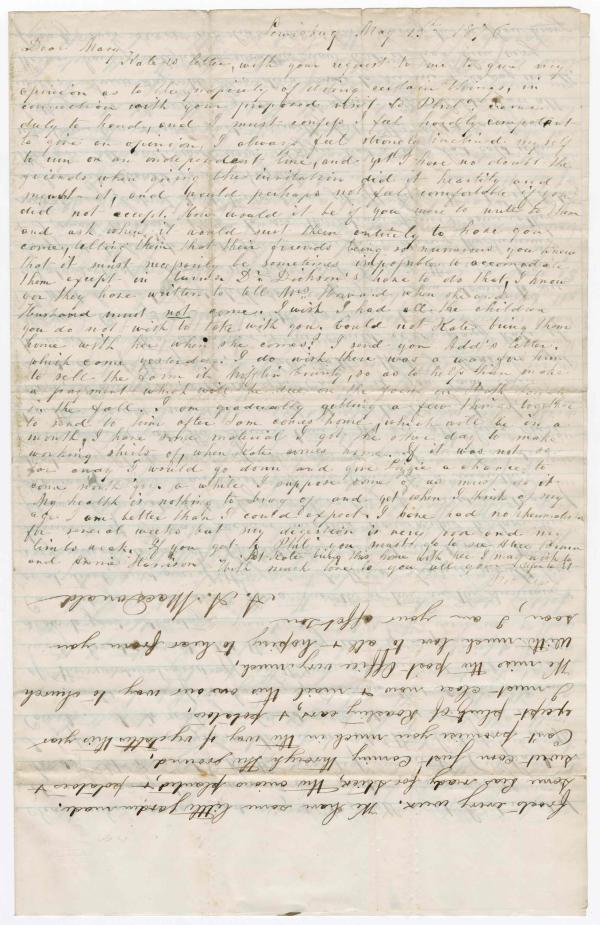 Lewisburg May 15th 1876
Dear Mary
Kate's letter, with your request to me to give my
opinion as to the propriety of doing certain things, in
connection with your proposed visit to Phil'a came
duly to hand, and I must confess I feel hardly competent
to give an opinion, I always feel strongly inclined myself
to run on an independent line, and yet I have no doubt the
friends when giving the invitation did it heartily and
meant it, and would perhaps not feel comfortable if you
did not accept. How would it be if you were to write to them
and ask when it would suit them entirely to have you
come, telling them that their friends being so numerous you knew
that it must necessarily be sometimes impossible to accommodate
them except in turn Dr Dickson's have to do that, I know
for they have written to tell Mrs Howard when she and
Husband must not come. I wish I had all the children
you do not wish to take with you. Could not Kate bring them
home with her when she comes? I send you Add's letter.
which came yesterday. I do wish there was a way for him
to sell the farm in Mifflin County, so as to help them make
a payment which will be due on the farm
in the fall. I am gradually getting a few things together
to send to him after Sam comes home, which will be in a
month, I have some material I got the other day to make
working shirts of, when Kate comes home. If it was not so
far away I would go down and give Lizzie a chance to
come with you a while I suppose some of us must do it
My health is nothing to brag of and yet when I think of my
age I am better than I could expect. I have had no rheumatism
for several weeks but my digestion is very poor and my
limbs weak. If you get to Phil' you must go to see Alice
and Annie Harrison Let Kate bring this home with her I may wish to
With much love to you all your

frosts every week. We have some little garden made.
some peas ready for sticks, the onions planted, & potatoes &
sweet corn just coming through the ground,
Cant promise you much in the way of eatables this year
except plenty of Roasting ears, & potatoes,
I must close now & mail this on our way to church
We miss the post office very much,
With much love to all & hoping to hear from you
soon, I am your affct son
A. A. MacDonald